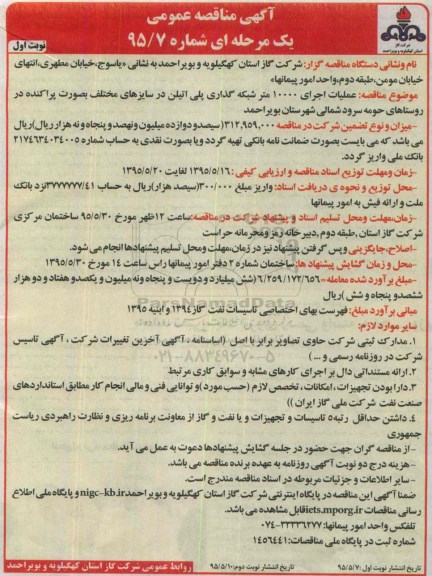 آگهی مناقصه عمومی
یک مرحله ای شماره ۹۵/۷
نوبت اول
شرکت گاز استان کهگیلویه و بویراحمد
نام ونشانی دستگاه مناقصه گزار: شرکت گاز استان کهگیلویه و بویراحمد به نشانی «یاسوج،خیابان مطهری،انتهای
خیابان مومن،طبقه دوم،واحد امور پیمانها»
موضوع مناقصه: عملیات اجرای ۱۰۰۰۰ متر شبکه گذاری پلی اتیلن در سایزهای مختلف بصورت پراکنده در
روستاهای حومه سرود شمالی شهرستان بویراحمد
-میزان و نوع تضمین شرکت در مناقصه ۳۱۲,۹۵۹,۰۰۰(سیصدو دوازده میلیون ونهصد و پنجاه و نه هزار ریال)ریال
می باشد که می بایست بصورت ضمانت نامه بانکی تهیه گردد و یا بصورت نقدی به حساب شماره ۲۱۷۴۶۳۴۰۳۴۰۰۵
بانک ملی واریز گردد.
-زمان ومهلت توزیع اسناد مناقصه و ارزیابی کیفی : ۱۳۹۵/۵/۱۶ لغایت ۱۳۹۵/۵/۲۰
-محل توزیع و نحوه ی دریافت اسناد: واریز مبلغ ۳۰۰/۰۰۰(سیصد هزار)ریال به حساب ۳۷۷۷۷۷۷/۴۱نزد بانک
ملت و ارائه فیش به امور پیمانها
-زمان،مهلت ومحل تسلیم اسناد و پیشنهاد شرکت در مناقصه:ساعت ۱۲ظهر مورخ ۹۵/۵/۳۰ ساختمان مرکزی
شرکت گاز استان ،طبقه دوم ،دبیرخانه رمز ومحرمانه حراست
-اصلاح،جایگزینی و پس گرفتن پیشنهاد نیز در زمان،مهلت ومحل تسلیم پیشنهادها انجام می شود.
-محل و زمان گشایش پیشنهاد ها: ساختمان شماره ۲ دفتر امور پیمانها راس ساعت ۱۴ مورخ ۱۳۹۵/۵/۳۰
-مبلغ برآورد شده معامله:۶/۲۵۹/۱۷۲/۶۵۶(شش میلیارد و دویست و پنجاه ونه میلیون و یکصدو هفتاد و دو هزار
ششصدو پنجاه و شش )ریال
مبانی برآورد مبلغ: فهرست بهای اختصاصی تاسیسات نفت گاز ۱۳۹۴ و ابنیه ۱۳۹۵
سایر موارد لازم:
۱. مدارک ثبتی شرکت حاوی تصاویر برابر با اصل (اساسنامه ، آگهی آخرین تغییرات شرکت ، آگهی تاسیس
شرکت در روزنامه رسمی و ... )
۲. ارائه مستنداتی دال بر اجرای کارهای مشابه و سوابق کاری مرتبط
۳. دارا بودن تجهیزات ، امکانات ، تخصص لازم (حسب مورد)و توانایی فنی و مالی انجام کار مطابق استانداردهای
صنعت نفت شرکت ملی گاز ایران ))
۴. داشتن حداقل رتبه۵ تاسیسات و تجهیزات و یا نفت و گاز از معاونت برنامه ریزی و نظارت راهبردی ریاست
جمهوری
- از مناقصه گران جهت حضور در جلسه گشایش پیشنهادها دعوت به عمل می آید.
-هزینه درج دو نوبت آگهی روزنامه به عهده برنده مناقصه می باشد.
- سایر اطلاعات و جزئیات مربوطه در اسناد مناقصه مندرج است.
ضمنا آگهی این مناقصه در پایگاه اینترنتی شرکت گاز استان کهگیلویه و بویراحمدnigc-kb.ir و پایگاه ملی اطلاع
رسانی مناقصات iets.mporg.irقابل مشاهده می باشد.
تلفکس واحد امور پیمانها: ۳۳۳۳۶۲۷۷-۰۷۴
شماره ثبت در پایگاه ملی مناقصات: ۱۴۵۶۴۴۱
تاریخ انتشار نوبت اول :۹۵/۵/۷
تاریخ انتشار نوبت دوم:۹۵/۵/۱۰
روابط عمومی شرکت گاز استان کهگیلویه و بویراحمد
ParsNamadData
۰۲۱-۸۸۳۴۹۶۷۰-۵